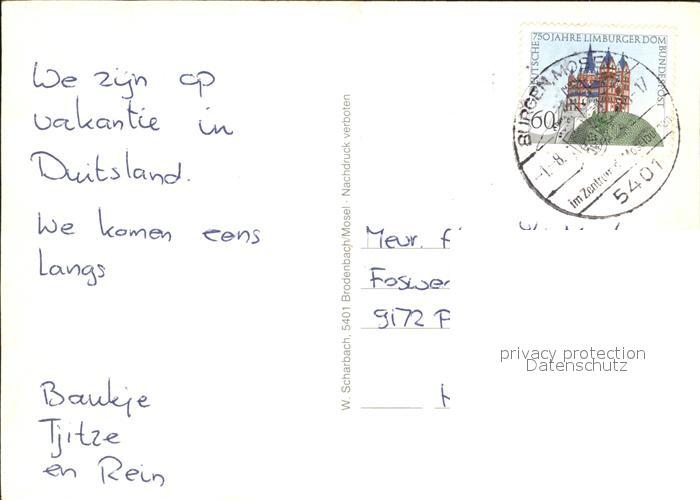 We zijn op
vakantie in
Duitsland.
We komen eens
langs
Baukje
Tjitze
en Rein
W. Scharbach, 5401 Brodenbach/Mosel · Nachdruck verboten
750 JAHRE LIMBURGER DOM
DEUTSCHE BUNDESPOST
60
BURGEN, MOSEL
5401
Mevr.
9172
privacy protection
Datenschutz